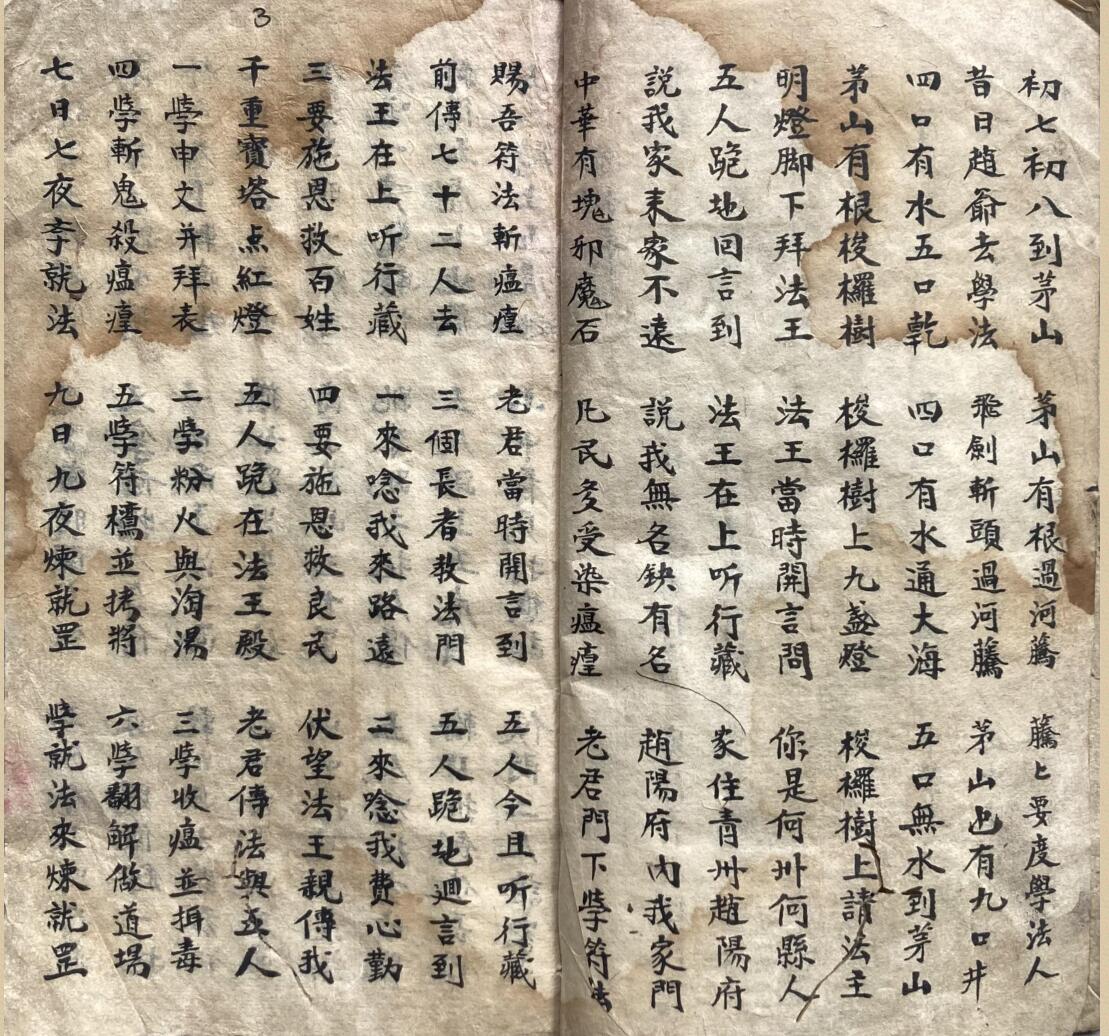 初七初八到茅山 茅山有根過河騰 騰匕要度學法人
昔日趙爺去學法 飛劍斬頭過河騰 茅山也有九口井
四口有水五口乾 四口有水通大海 五口無水到茅山
茅山有根梭欏樹 梭欏樹上九盞燈 梭欏樹上請法主
明燈脚下拜法王 法王當時開言問 你是何州何縣人
五人跪地回言到 法王在上听行藏 家住青州趙陽府
說我家來家不遠 說我無名鈌有名 趙陽府內我家門
中華有塊邪魔石 凡民多受染瘟㾮 老君門下斈符法
3
賜吾符法斬瘟㾮 老君當時開言到 五人今且听行藏
前傳七十二人去 三個長者教法門 五人跪地迴言到
法王在上听行藏 一來唸我來路遠 二來唸我費心勤
三要施恩救百姓 四要施恩救良民 伏望法王親傳我
千重寶塔点紅燈 五人跪在法王殿 老君傳法與五人
一斈申文并拜表 二斈粉火與淘湯 三斈收瘟並揖毒
四斈斬鬼殺瘟㾮 五斈符並拷將 六斈翻解做道場
七日七夜斈就法 九日九夜煉就罡 斈就法來煉就罡